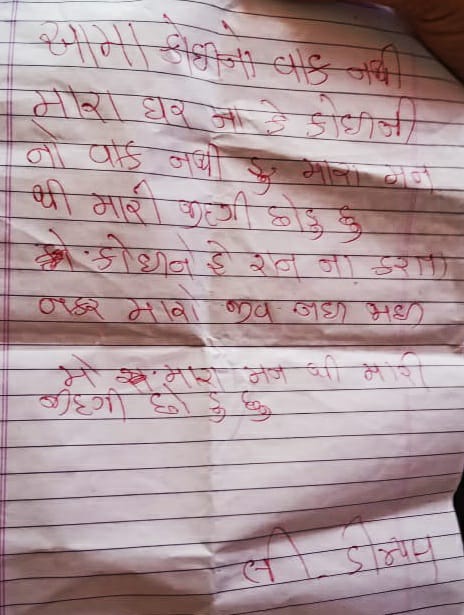 આમા કોઈનો વાક નથી
મારા ઘર ના કે કોઈની
નો વાક નથી હુ મારા મન
થી મારી જીદગી છોડુ છુ
કોઈને હેરાન ના કરતા
નકર મારો જીવ નઈ
મે મારા મન થી મારી
જીદગી છોડુ છુ
લી. ડીમ્પલ